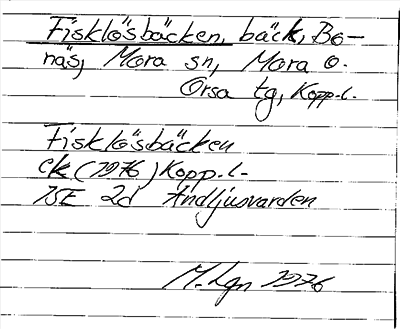 Fisklösbäcken, bäck, Bo-
näs, Mora sn, Mora o.
Orsa tg, Kopp. l.
Fisklösbäcken
ek (1976) Kopp. l.
15E 2d Andljusvarden
M. Lgn 1976